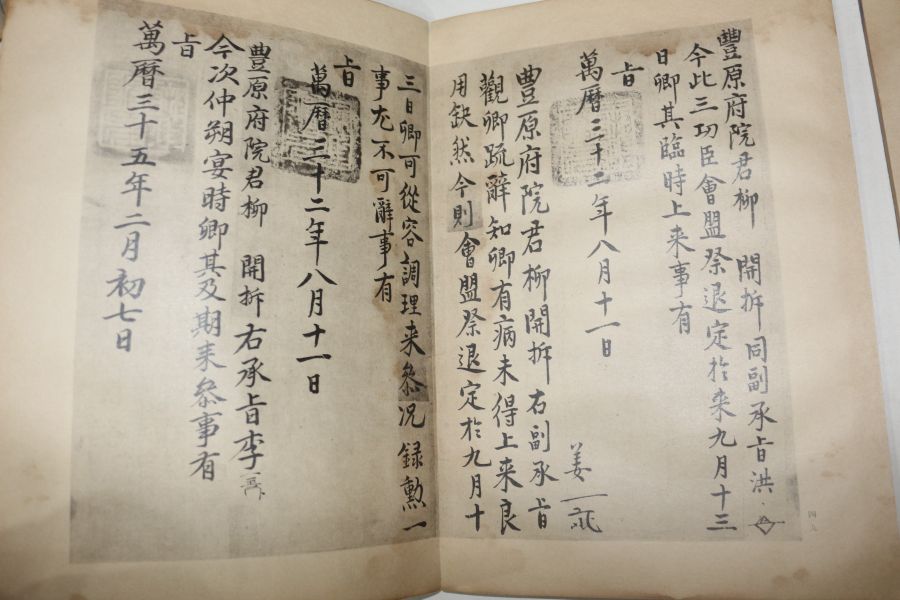 豐原府院君柳 開拆 同副承旨洪
今此三功臣會盟祭退定於来九月十三
日卿其臨時上来事有
旨
萬曆三十二年八月十一日
豊原府院君柳開拆 右副承旨姜
觀卿疏辭知卿有病未得上来良
用缺然今則會盟祭退定於九月十
三日卿可從容調理来叅况録勲一
事尤不可辭事有
旨
萬曆三十二年八月十一日
豊原府院君柳 開拆 右承旨李
今次仲朔宴時卿其及期来叅事有
旨
萬曆三十五年二月初七日
四八